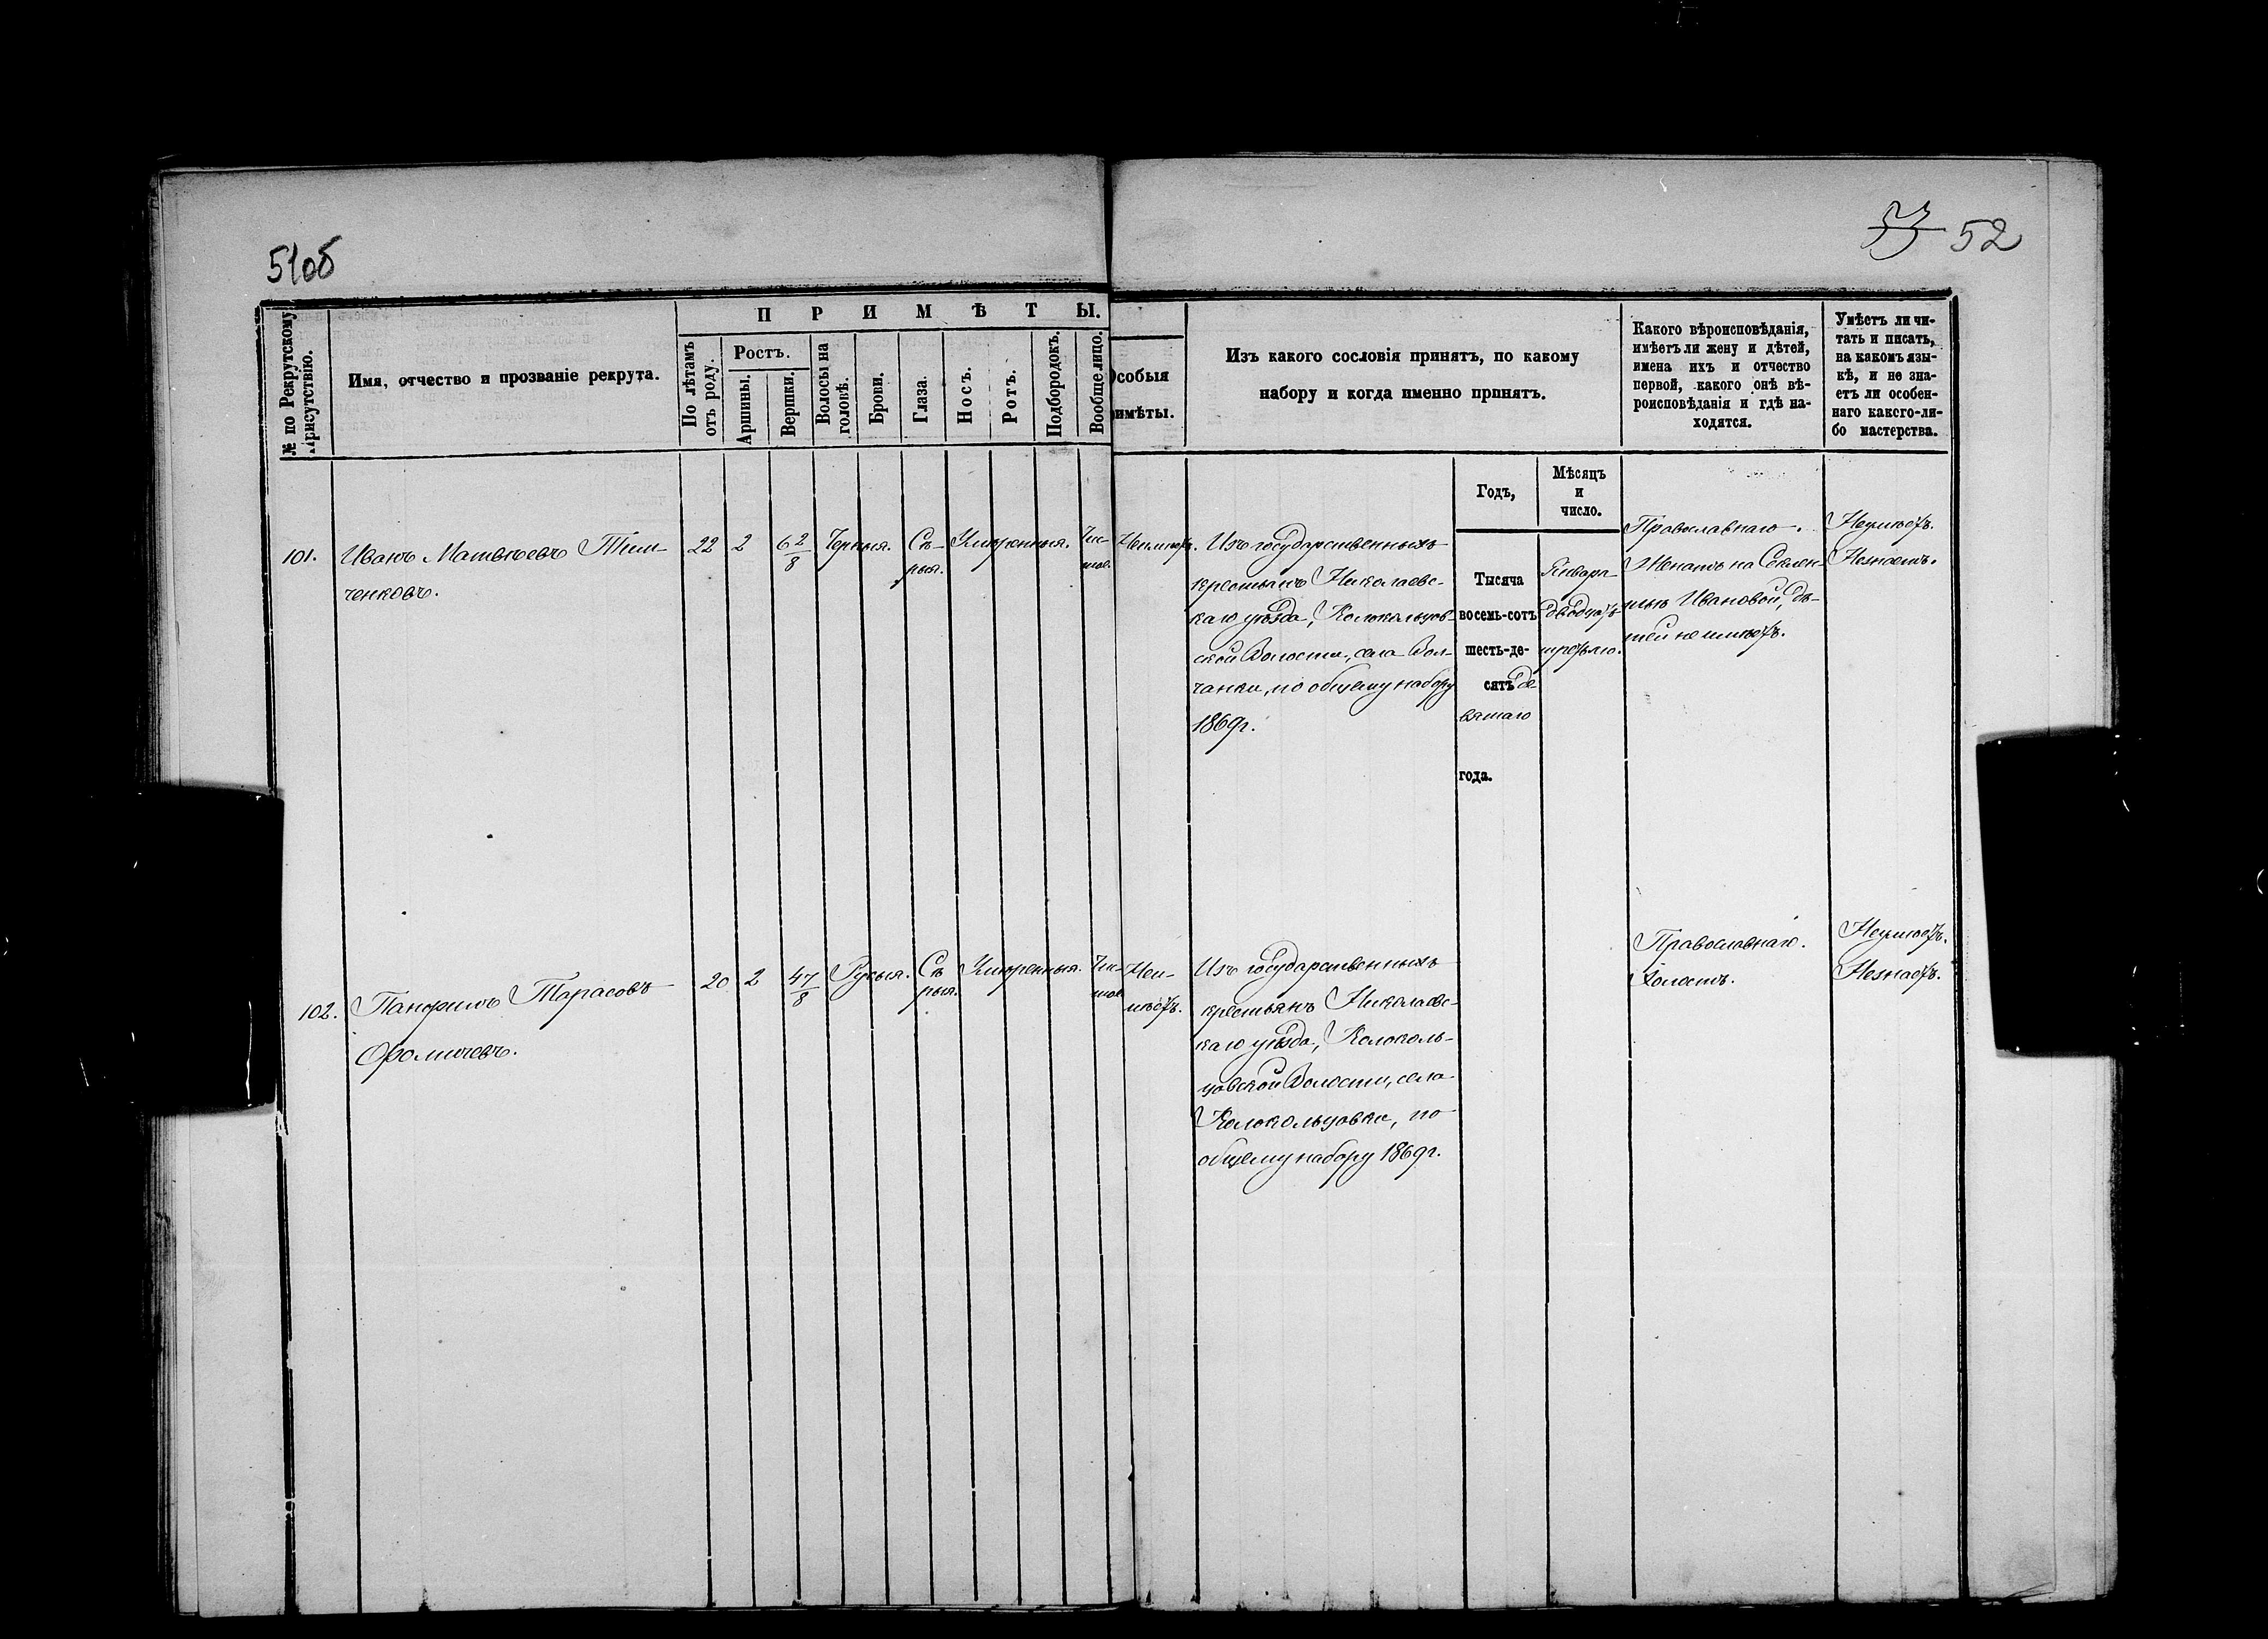 51об
52
№ по Рекрутскому Присутствію.
Имя, отчество и прозваніе рекрута.
ПРИМѢТЫ.
По лѣтамъ отъ роду.
Ростъ.
Аршины.
Вершки.
Волосы на головѣ.
Брови.
Глаза.
Носъ.
Ротъ.
Подбородокъ.
Вообще лицо.
Особыя
имѣты.
Изъ какого сословія принятъ, по какому
набору и когда именно принятъ.
Какого вѣроисповѣданія,
имѣетъ ли жену и дѣтей,
имена ихъ и отчество
первой, какого онѣ вѣ-
роисповѣданія и гдѣ на-
ходятся.
Умѣетъ ли чи-
тать и писать,
на какомъ язы-
кѣ, и не зна-
етъ ли особен-
наго какого-ли-
бо мастерства.
Годъ,
Мѣсяцъ
и
число.
101.
Иванъ Матвѣевъ Тим-
ченковъ.
22
2
6 2/8
Черныя.
Сѣ-
рыя.
Умѣренныя.
Чис-
тое.
Неимѣетъ.
Изъ государственныхъ
крестьянъ Николаевс-
каго уѣзда, Колокольцов-
ской Волости, села Вол-
чанки, по общему набору
1869 г.
Тысяча
восемь-сотъ
шесть-де-
сятъ де-
вятаго
года.
Января
двадцать
третьяго.
Православнаго.
Женатъ на Секлен-
тьѣ Ивановой, дѣ-
тей не имѣетъ.
Неумѣетъ.
Незнаетъ.
102.
Панфилъ Тарасовъ
Фомичевъ.
20
2
4 7/8
Русыя.
Сѣ
рыя.
Умѣренныя.
Чис-
тое
Неи-
мѣетъ.
Изъ государственныхъ
крестьянъ Николаевс-
каго уѣзда, Колоколь-
цовской Волости, села
Колокольцовки, по
общему набору 1869 г.
Православнаго.
Холостъ.
Неумѣетъ.
Незнаетъ.